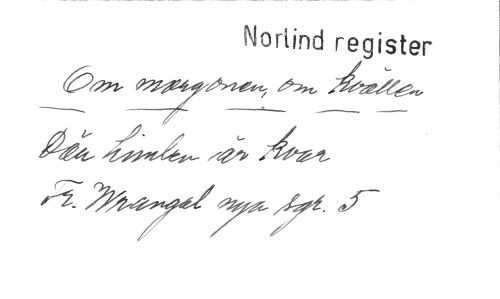 Norlind register
Om morgonen, om kvällen
Där himlen är kvar
Fr. Wrangel nya sgr. 5